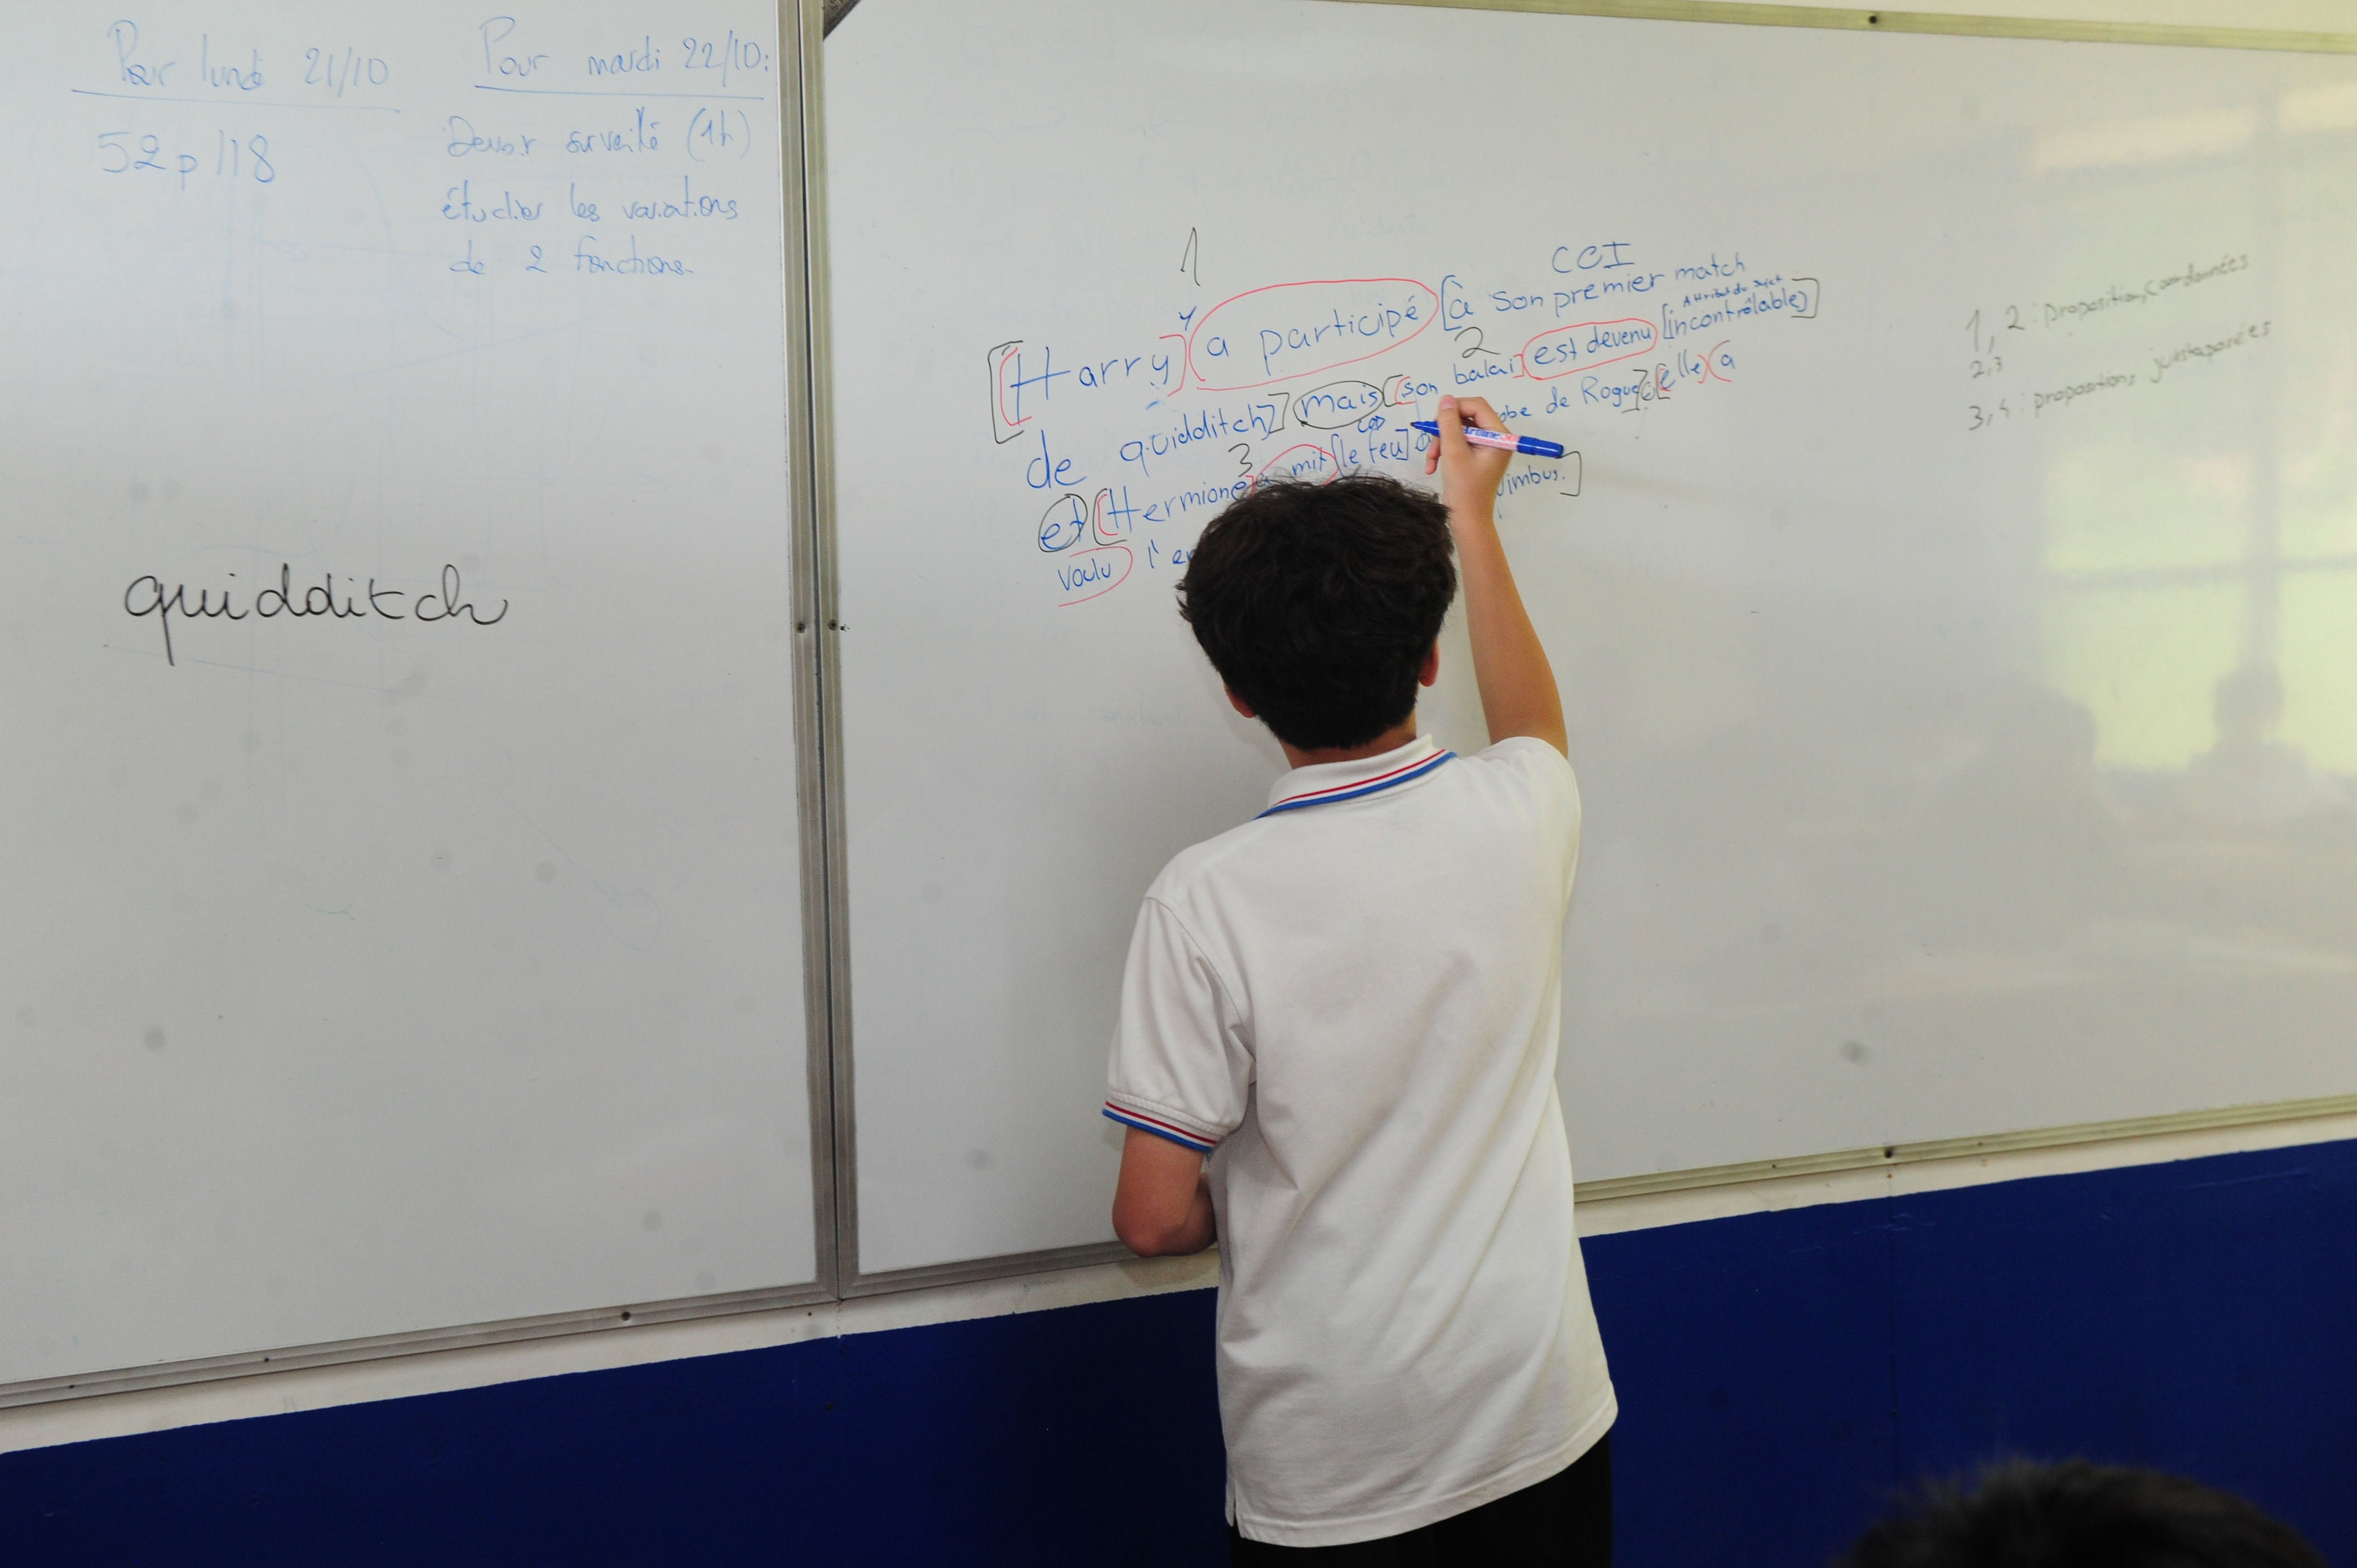 Pour lundi 21/10
52 p 118
Pour mardi 22/10:
Devoir surveillé (1h)
étudier les variations
de 2 fonctions.
quidditch
1
COI
[[Harry] a participé [à son premier match
Attribut du sujet
2
de quidditch]] mais [[son balai] est devenu [incontrôlable]]
COD
3
et [[Hermione] a mit [le feu] robe de Rogue], [[elle] a
voulu l' Nimbus.]
1, 2 : propositions coordonnées
2,3
3,4 : propositions juxtaposées